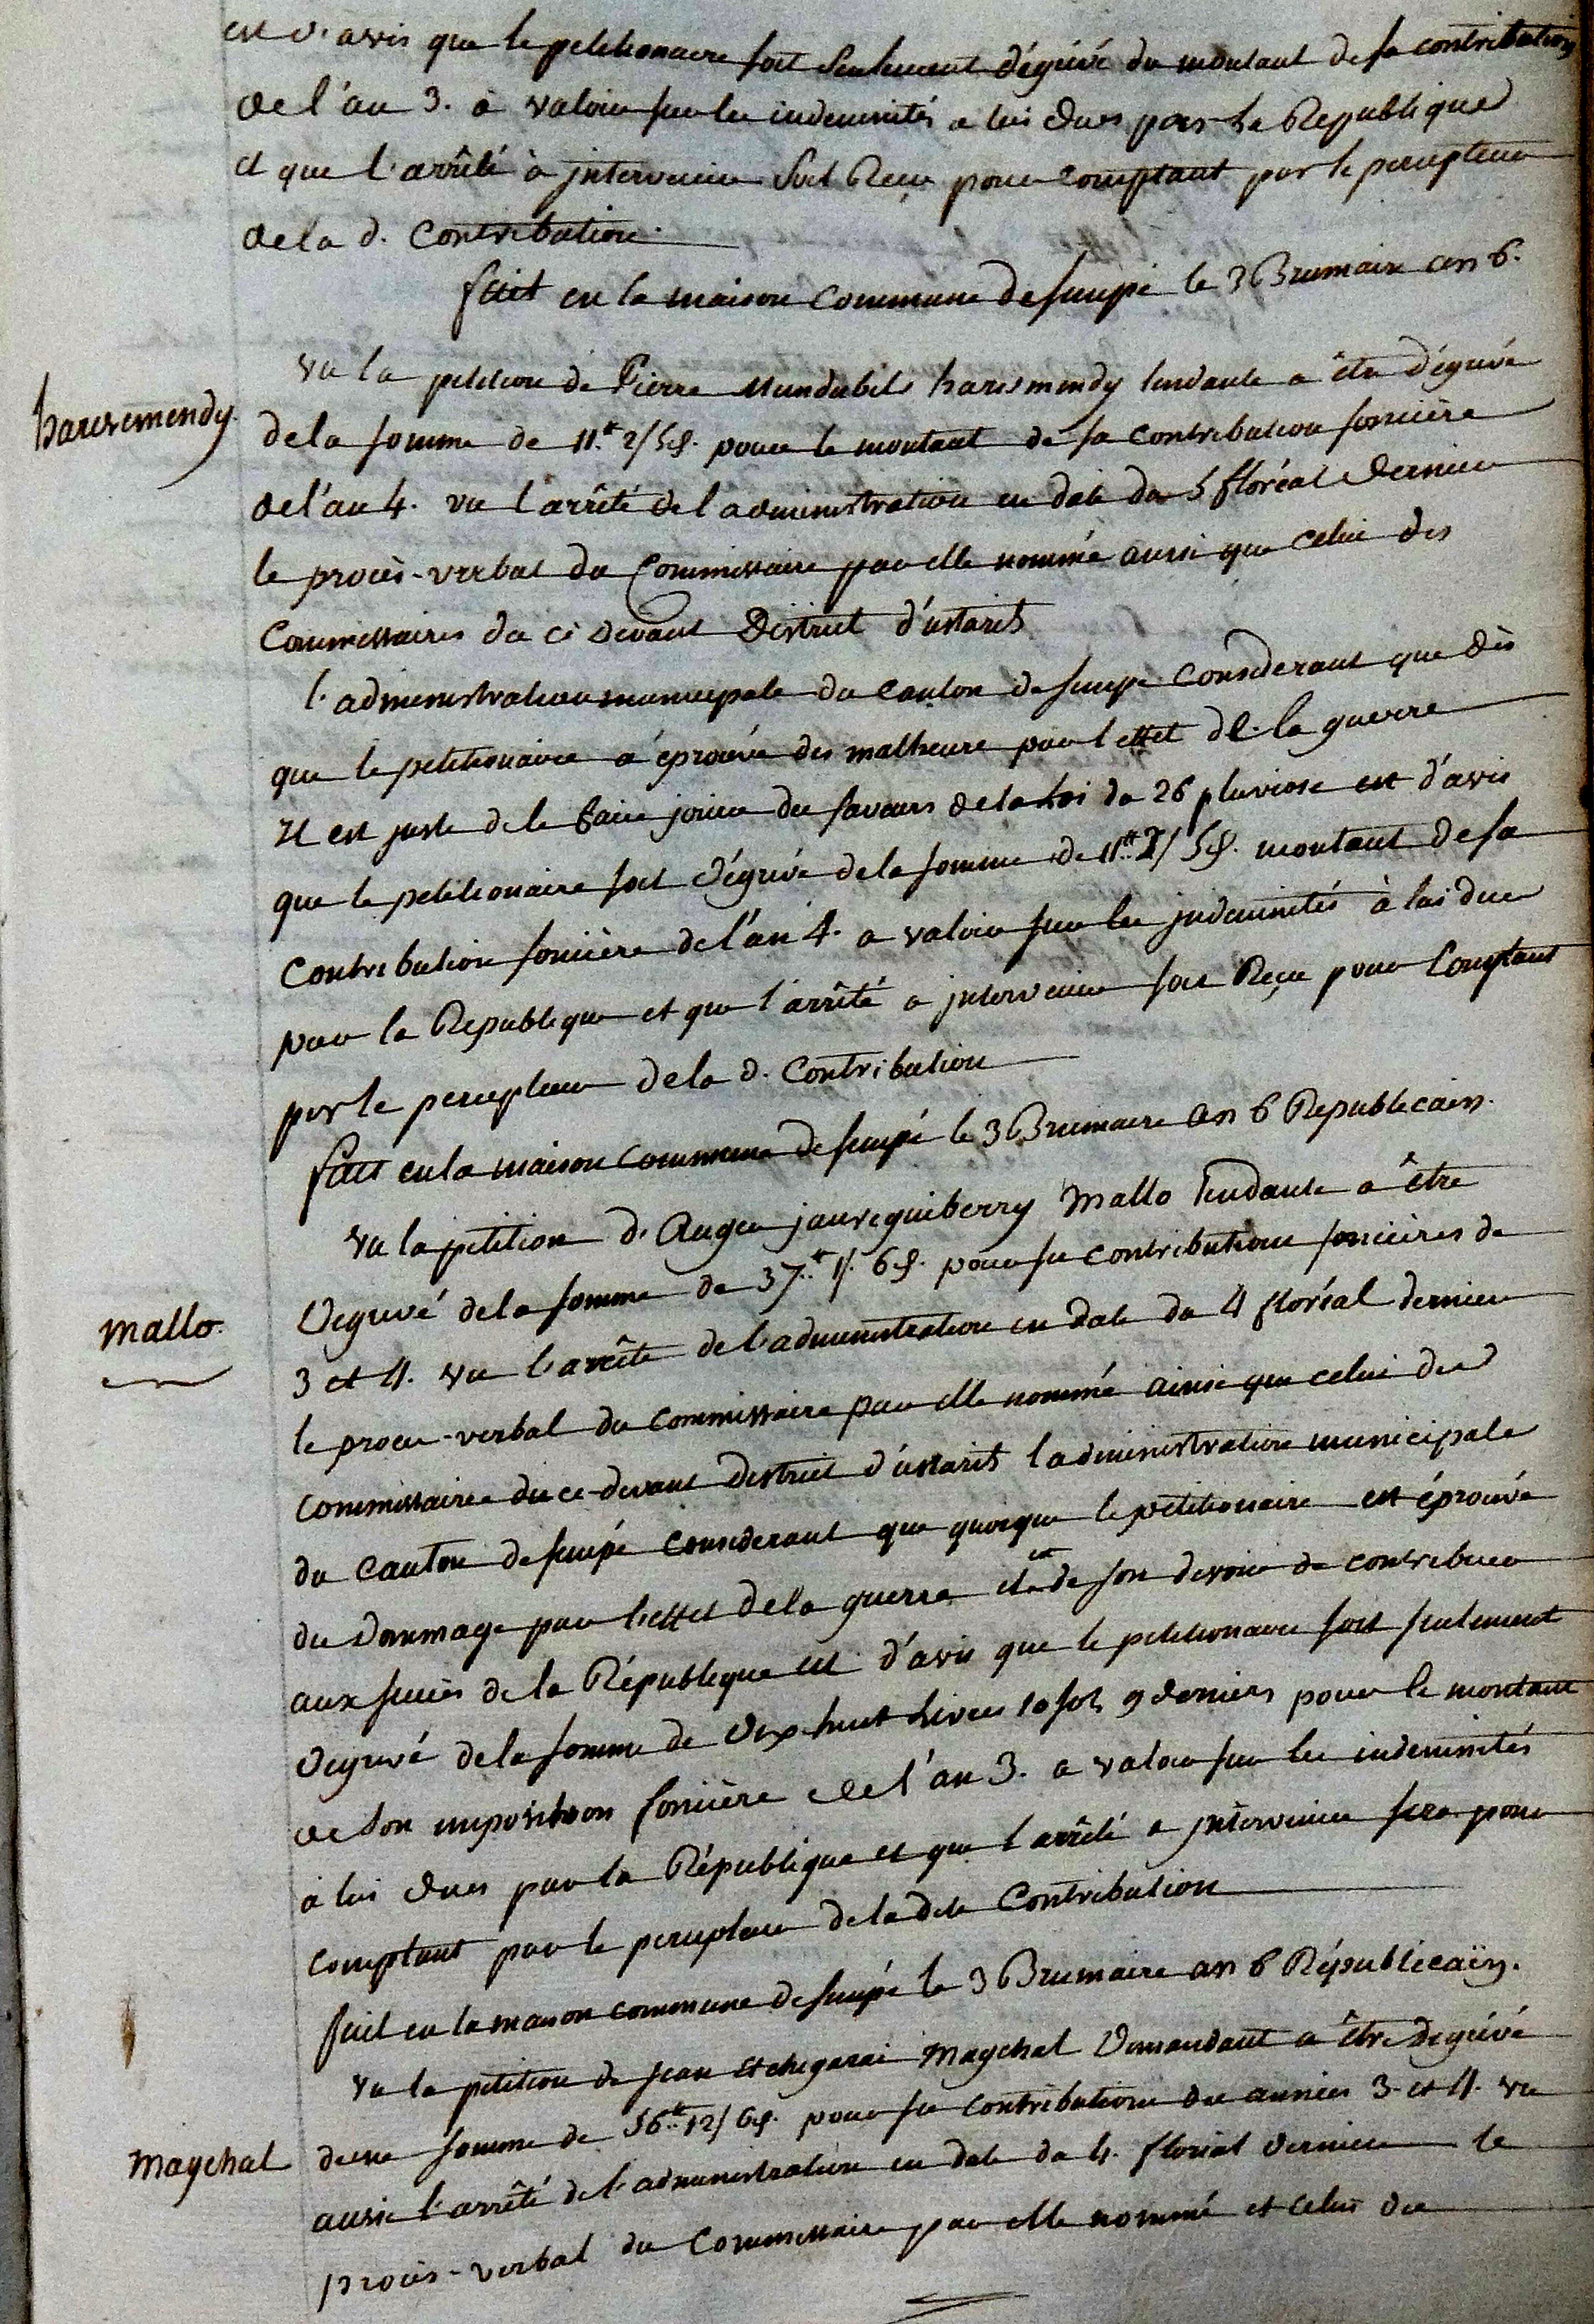 est d'avis que le petitionaire soit seulement dégrévé du montant de sa contribution
de l'an 3. a valoir sur les indemnités a lui dues par la Republique
et que l'arrêté à jntervenir soit Reçu pour comptant par le percepteur
de la d. Contribution.
fait en la maison Commune de Senpé le 3 Brumaire an 6.
Vu la petition de Pierre Mundubils harismendy tendante a être dégrévé
haresmendy.
de la somme de 11.tt 2/ 5d. pour le montant de sa contribution foncière
de l'an 4. vu l'arrêté de l'administration en date du 5 floréal dernier
le procès-verbal du Commissaire par elle nommé aussi que celui des
Commissaires du ci devant District d'ustarits
l'administration municipale du canton de Senpé Considerant que dès
que le petitionaire a éprouvé des malheurs par l'effet de la guerre
Il est juste de le faire jouir des faveurs de la Loi du 26 pluviose est d'avis
que le petitionaire soit dégrévé de la somme de 11.tt 2/ 5d. montant de sa
Contribution foncière de l'an 4. a valoir sur les jndemnités à lui dues
par la Republique et que l'arrêté a jntervenir soit Reçu pour Comptant
par le percepteur de la d. Contribution
fait en la maison Commune de Senpé le 3 Brumaire an 6 Republicain.
Vu la petition d'Auger jaureguiberry Mallo tendante a être
Degrevé de la somme de 37.tt 1/. 6d. pour ses contributions foncières de
mallo.
3 et 4. vu l'arrêté de l'administration en date du 4 floréal dernier
le proces-verbal du commissaire par elle nommé ainsi que celui des
commissaires du ce-devant District d'ustarits l'administration municipale
du canton de Senpé considerant que quoique le petitionaire est éprouvé
du dommage par l'effet de la guerre il est de son devoir de contribuer
aux succès de la République est d'avis que le petitionaire soit seulement
Degrevé de la somme de Dix huit Livres 10 sols 9 deniers pour le montant
de son imposition foncière de l'an 3. a valoir sur les indemnités
à lui dues par la République et que l'arrêté a jntervenir sera pour
comptant par le percepteur de la dite Contribution
fait en la maison commune de Senpé le 3 Brumaire an 6 Républicaïn.
Vu la petition de Jean Etchegarai Maychal Demandant a être Degrévé
d'une somme de 56.tt 12/ 6d. pour ses contributions des années 3. et 4. vu
Maychal
aussi l'arrêté de l'administration en date du 4. floréal dernier le
procès-verbal du Commissaire par elle nommé et celui des